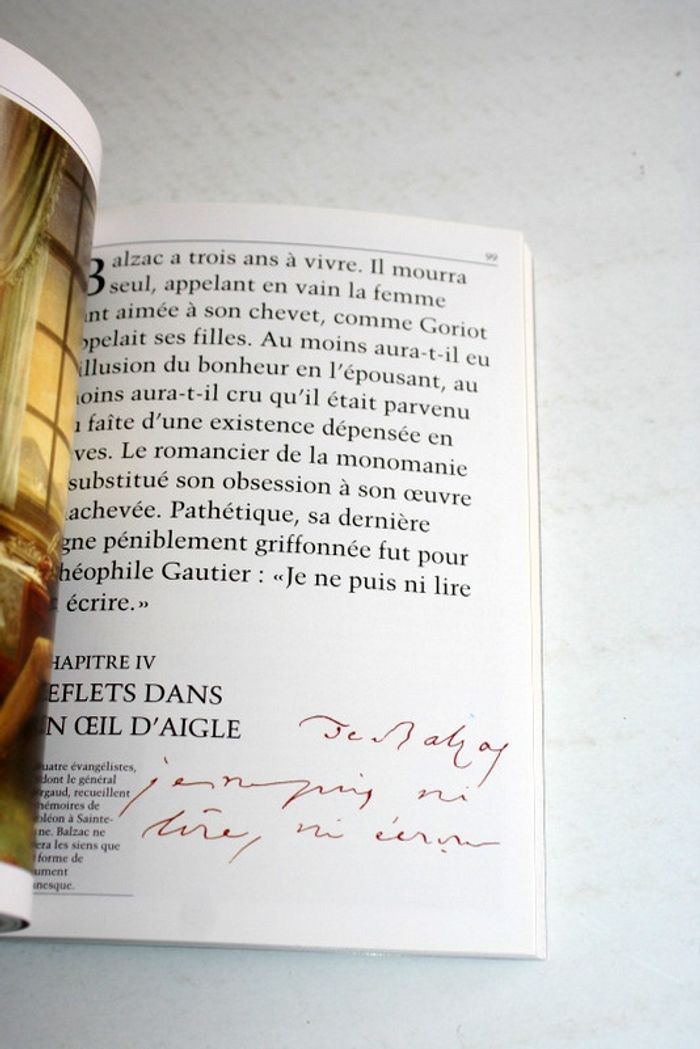 99
Balzac a trois ans à vivre. Il mourra
seul, appelant en vain la femme
nt aimée à son chevet, comme Goriot
ppelait ses filles. Au moins aura-t-il eu
illusion du bonheur en l'épousant, au
oins aura-t-il cru qu'il était parvenu
faîte d'une existence dépensée en
ves. Le romancier de la monomanie
substitué son obsession à son œuvre
achevée. Pathétique, sa dernière
gne péniblement griffonnée fut pour
héophile Gautier : «Je ne puis ni lire
écrire.»
HAPITRE IV
EFLETS DANS
N ŒIL D'AIGLE
uatre évangélistes,
dont le général
rgaud, recueillent
mémoires de
oléon à Sainte-
ne. Balzac ne
era les siens que
forme de
ument
nesque.
De Balzac
je ne puis ni
lire, ni écrire